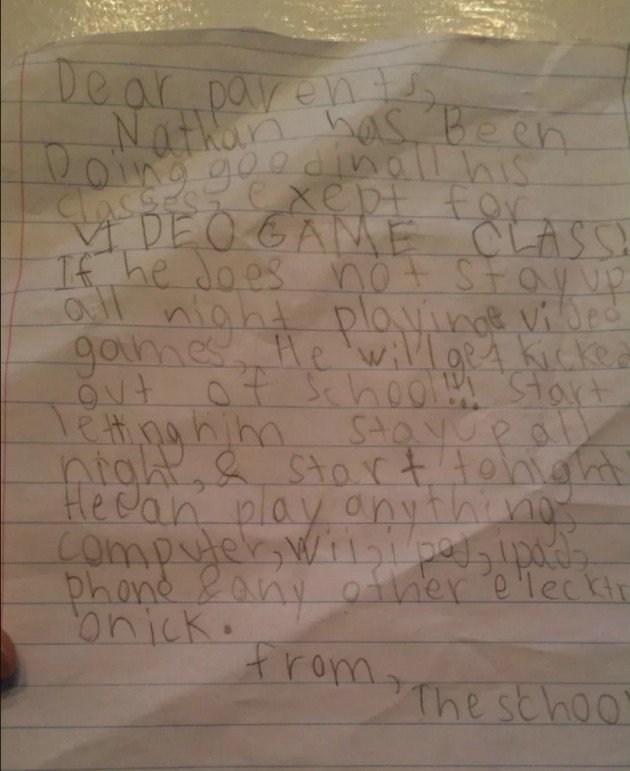 Dear parents,
Nathan has Been
Doing good in all his
classes, exept for
VIDEO GAME CLASS!
If he does not stay up
all night playing video
games, He will get kicked
out of school!!! Start
letting him stay up all
night, & start tonight
He can play anything,
computer, Wii, ipod, ipad,
phone & any other elecktr
onick.
from,
The school